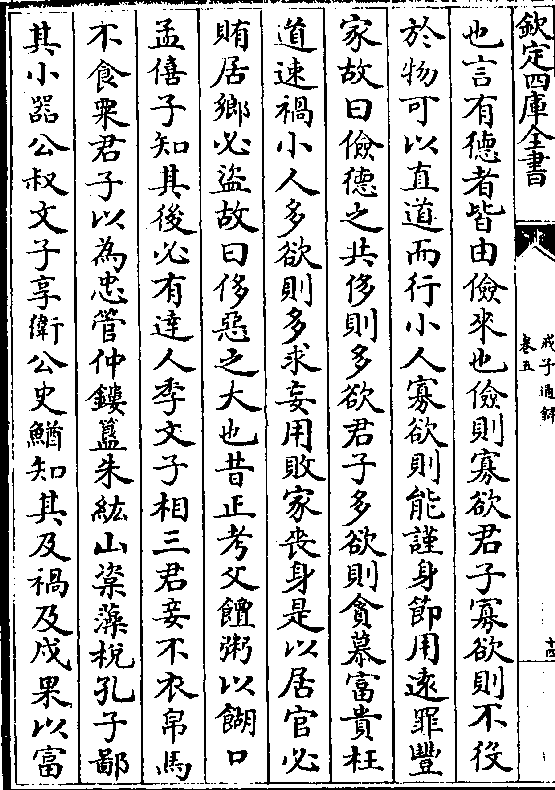 欽定四庫全書
戒子通錄
卷五
十四
也言有徳者皆由儉來也儉則寡欲君子寡欲則不役
於物可以直道而行小人寡欲則能謹身節用逺罪豐
家故曰儉徳之共侈則多欲君子多欲則貪慕富貴枉
道速禍小人多欲則多求妄用敗家喪身是以居官必
賄居鄉必盜故曰侈惡之大也昔正考父饘粥以餬口
孟僖子知其後必有達人季文子相三君妾不衣帛馬
不食粟君子以為忠管仲鏤簋朱紘山楶藻梲孔子鄙
其小器公叔文子享衛公史鰌知其及禍及戍果以富